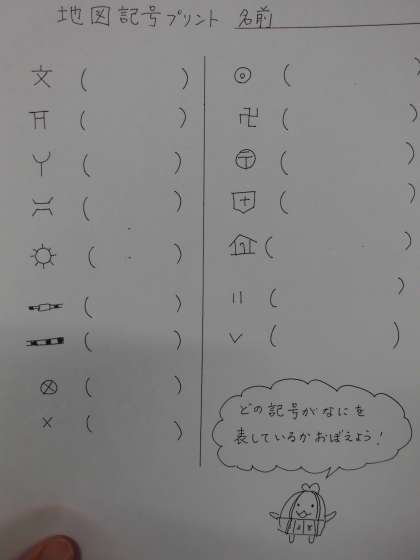 地図記号プリント 名前
文 ( )
( )
( )
( )
( )
( )
( )
( )
× ( )
◎ ( )
卍 ( )
〒 ( )
( )
( )
〃 ( )
∨ ( )
どの記号がなにを
表しているかおぼえよう!